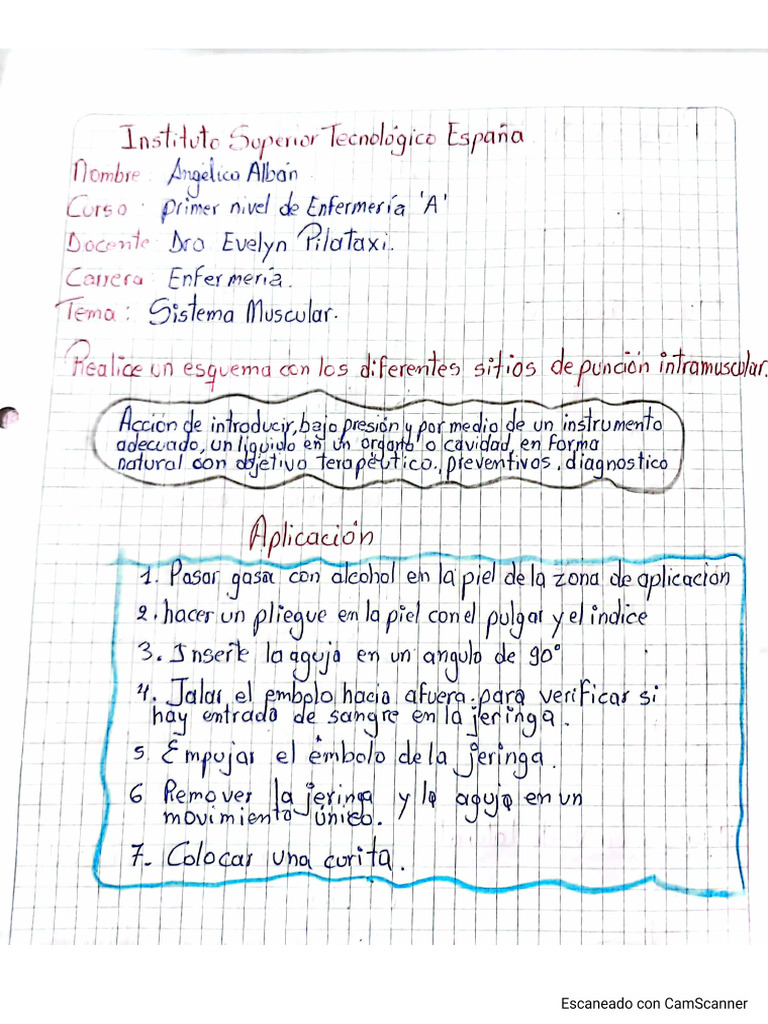 Instituto Superior Tecnológico España
Nombre: Angélica Albán
Curso: primer nivel de Enfermería 'A'
Docente: Dra Evelyn Pilataxi.
Carrera: Enfermería.
Tema: Sistema Muscular.
Realice un esquema con los diferentes sitios de punción intramuscular.
Acción de introducir, bajo presión y por medio de un instrumento
adecuado, un liquido en un organo o cavidad, en forma
natural con objetivo terapéutico, preventivos, diagnostico
Aplicación
1. Pasar gasa con alcohol en la piel de la zona de aplicación
2. hacer un pliegue en la piel con el pulgar y el indice
3. Inserte la aguja en un angulo de 90°
4. Jalar el embolo hacia afuera para verificar si
hay entrada de sangre en la jeringa.
5. Empujar el émbolo de la jeringa.
6 Remover la jeringa y la aguja en un
movimiento único.
7- Colocar una curita.
Escaneado con CamScanner